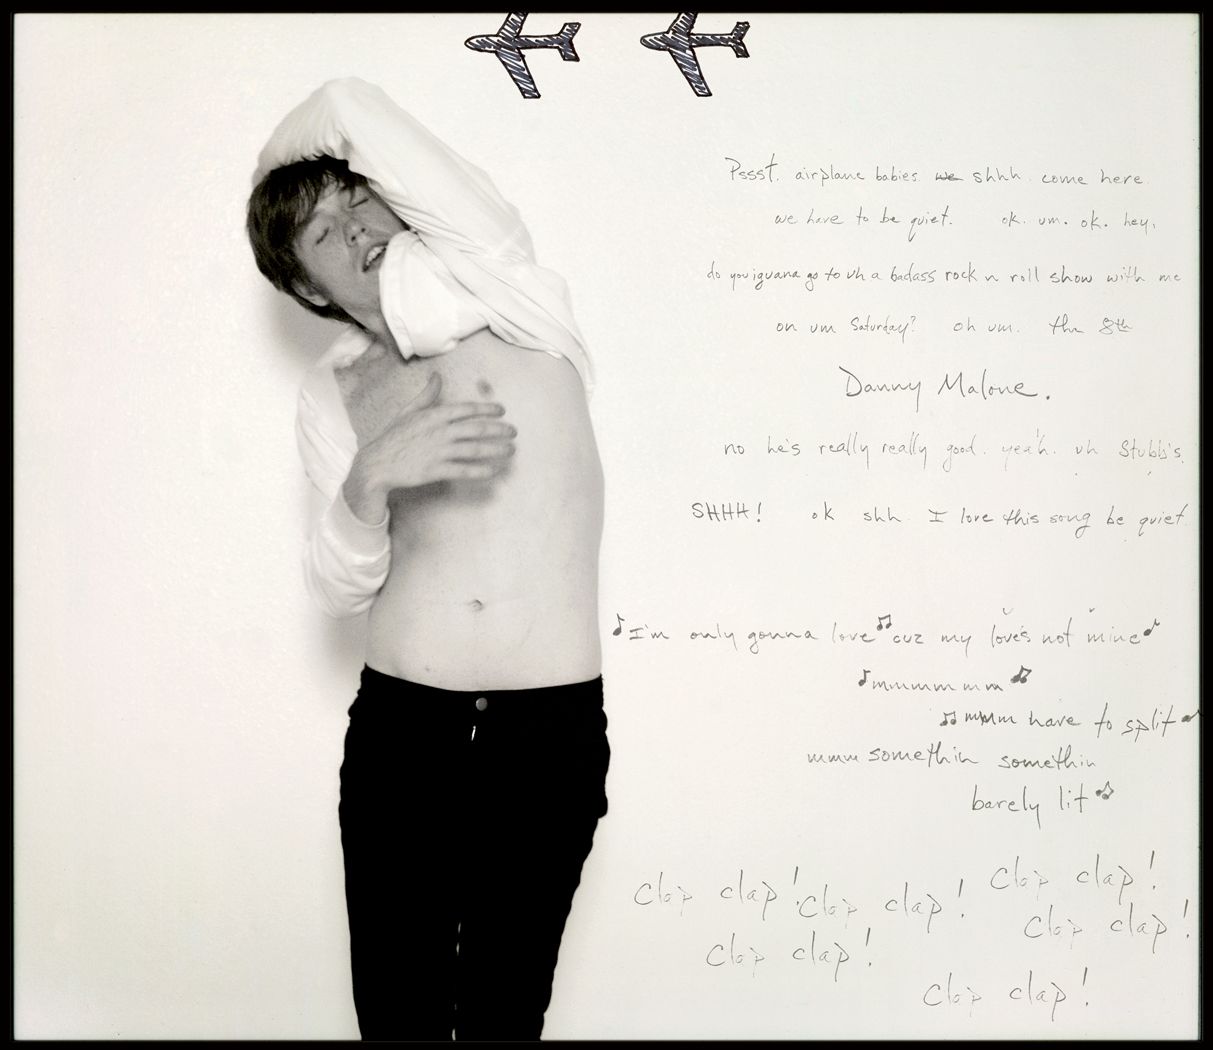 Pssst. airplane babies. we shhh. come here.
we have to be quiet. ok. um. ok. hey,
do you iguana go to uh a badass rock n roll show with me
on um Saturday? oh um. the 8th
Danny Malone.
no he's really really good. yeah. uh Stubb's.
SHHH! ok shh. I love this song be quiet.
♪ I'm only gonna love ♫ cuz my love's not mine ♪
♪ mmmmmmm ♫
♫ mmmm have to split ♪
mmm somethin somethin
barely lit ♫
Clap clap! Clap clap! Clap clap!
Clap clap! Clap clap!
Clap clap!